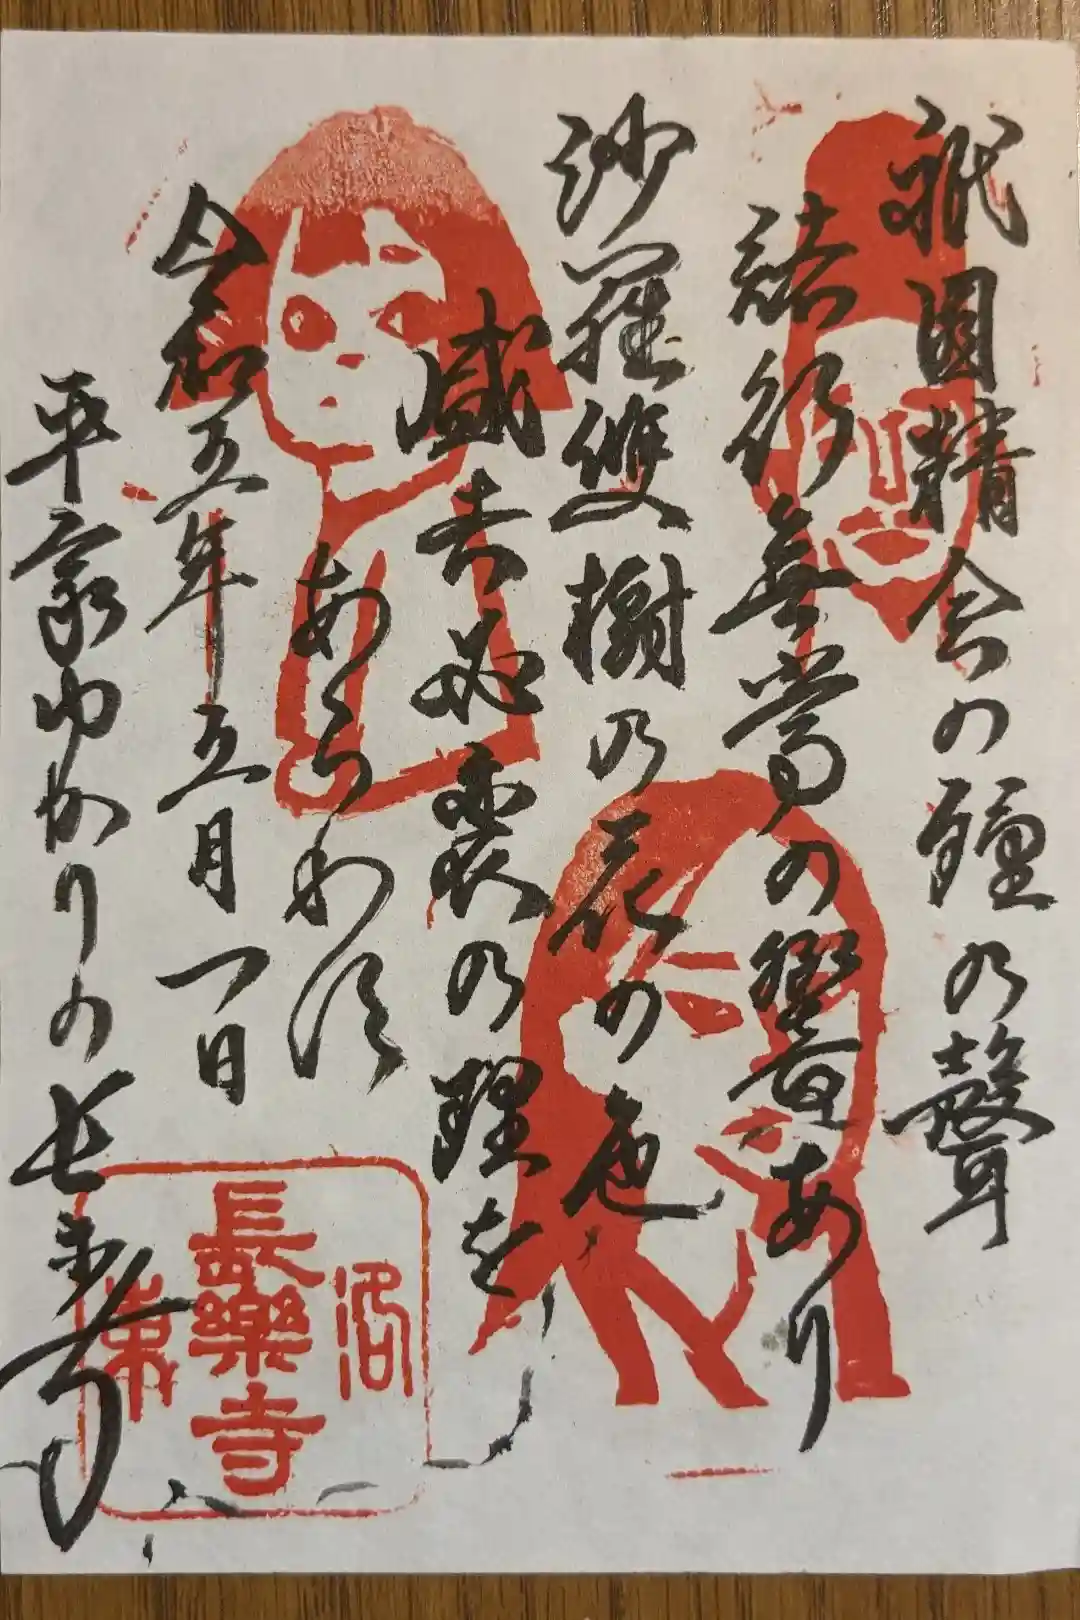 祇園精舎の鐘の聲
諸行無常の響あり
沙羅雙樹の花の色
盛者必衰の理を
あらわす
令和五年五月一日
平家ゆかりの長楽寺
洛東
長樂寺